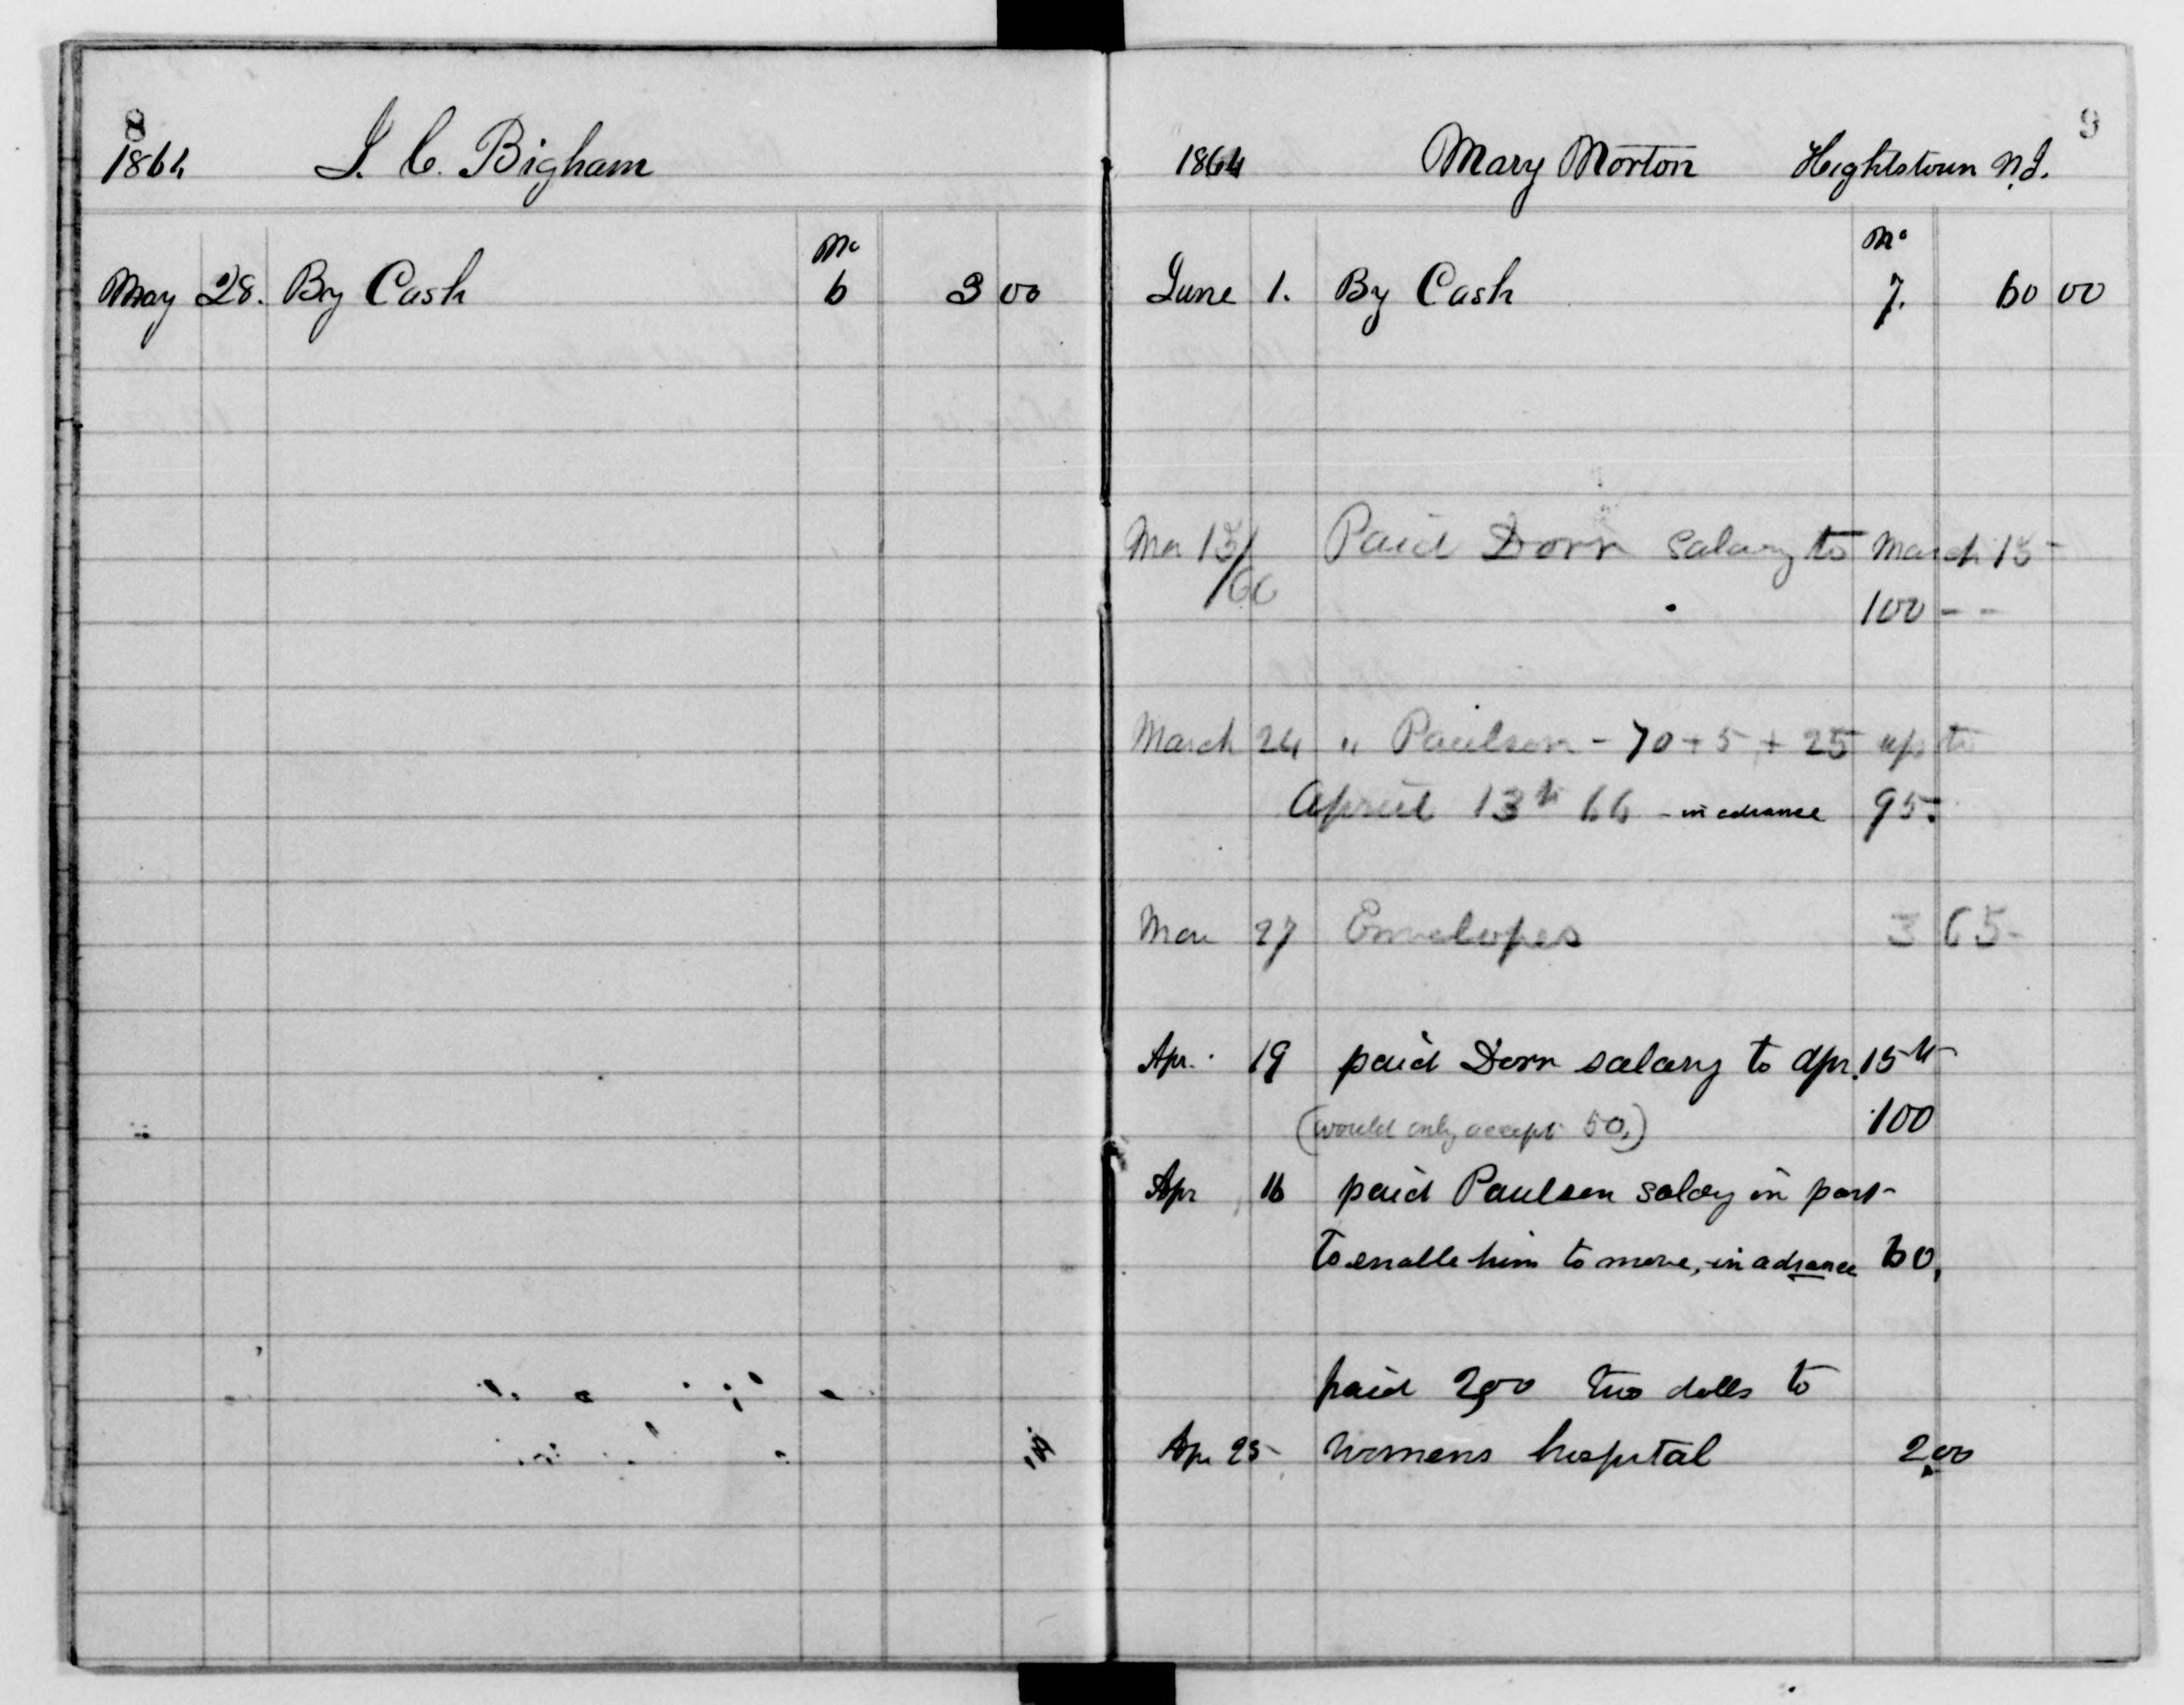 8
1864 J. C. Bigham
No
May 28. By Cash 6 3 00
9
1864 Mary Morton Heightstown N.J.
No
June 1. By Cash 7. 60 00
Mar 15/66 Paid Dorr Salary to March 15-
100 - -
March 24 " Paulsen - 70 + 5 + 25 up to
Apriil 13th 66 - in advance 95-
Mar 27 Envelopes 3 65-
Apr. 19 paid Dorr salary to Apr. 15th
(would only accept 50.) 100
Apr 16 paid Paulsen salary in part-
to enable him to move, in advance 60.
paid 2,00 two dolls to
Apr 25- womens hospital 2.00